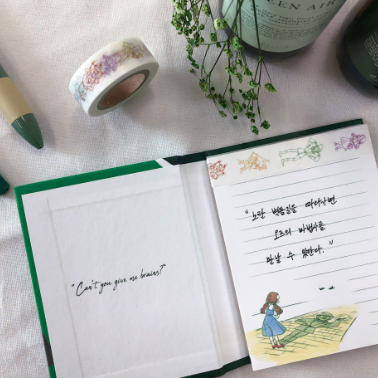 "Can't you give me brains?"
"노란 벽돌길을 따라가면
오즈의 마법사를
만날 수 있단다."